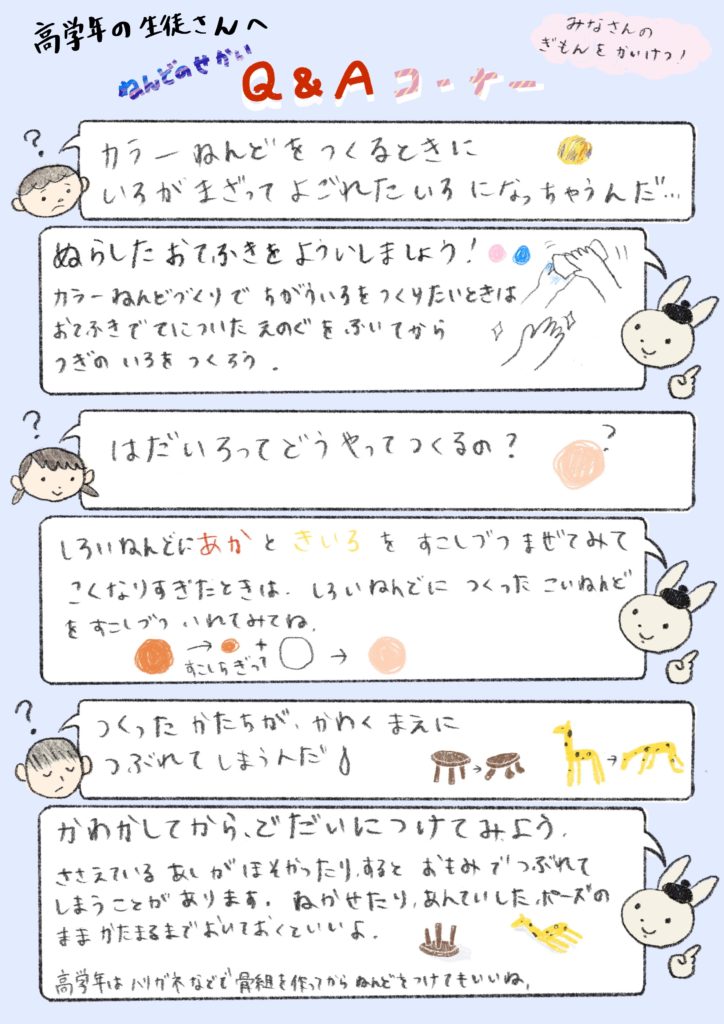 高学年の生徒さんへ
みなさんの
ぎもんをかいけつ！
ねんどのせかい
Q&Aコーナー
？
カラーねんどをつくるときに
いろがまざってよごれたいろになっちゃうんだ…
ぬらしたおてふきをよういしましょう！
カラーねんどづくりでちがういろをつくりたいときは
おてふきでてについたえのぐをふいてから
つぎのいろをつくろう.
？
はだいろってどうやってつくるの？
？
しろいねんどにあかときいろをすこしづつまぜてみて
こくなりすぎたときは.しろいねんどにつくったこいねんど
をすこしづついれてみてね.
→ + → 
すこしちぎって
？
つくったかたちが、かわくまえに
つぶれてしまうんだ
→ →
かわかしてから、どだいにつけてみよう.
ささえているあしがほそかったり,するとおもみでつぶれて
しまうことがあります. ねかせたり,あんていしたポーズの
ままかたまるまでおいておくといいよ.
高学年はハリガネなどで骨組を作ってからねんどをつけてもいいね.